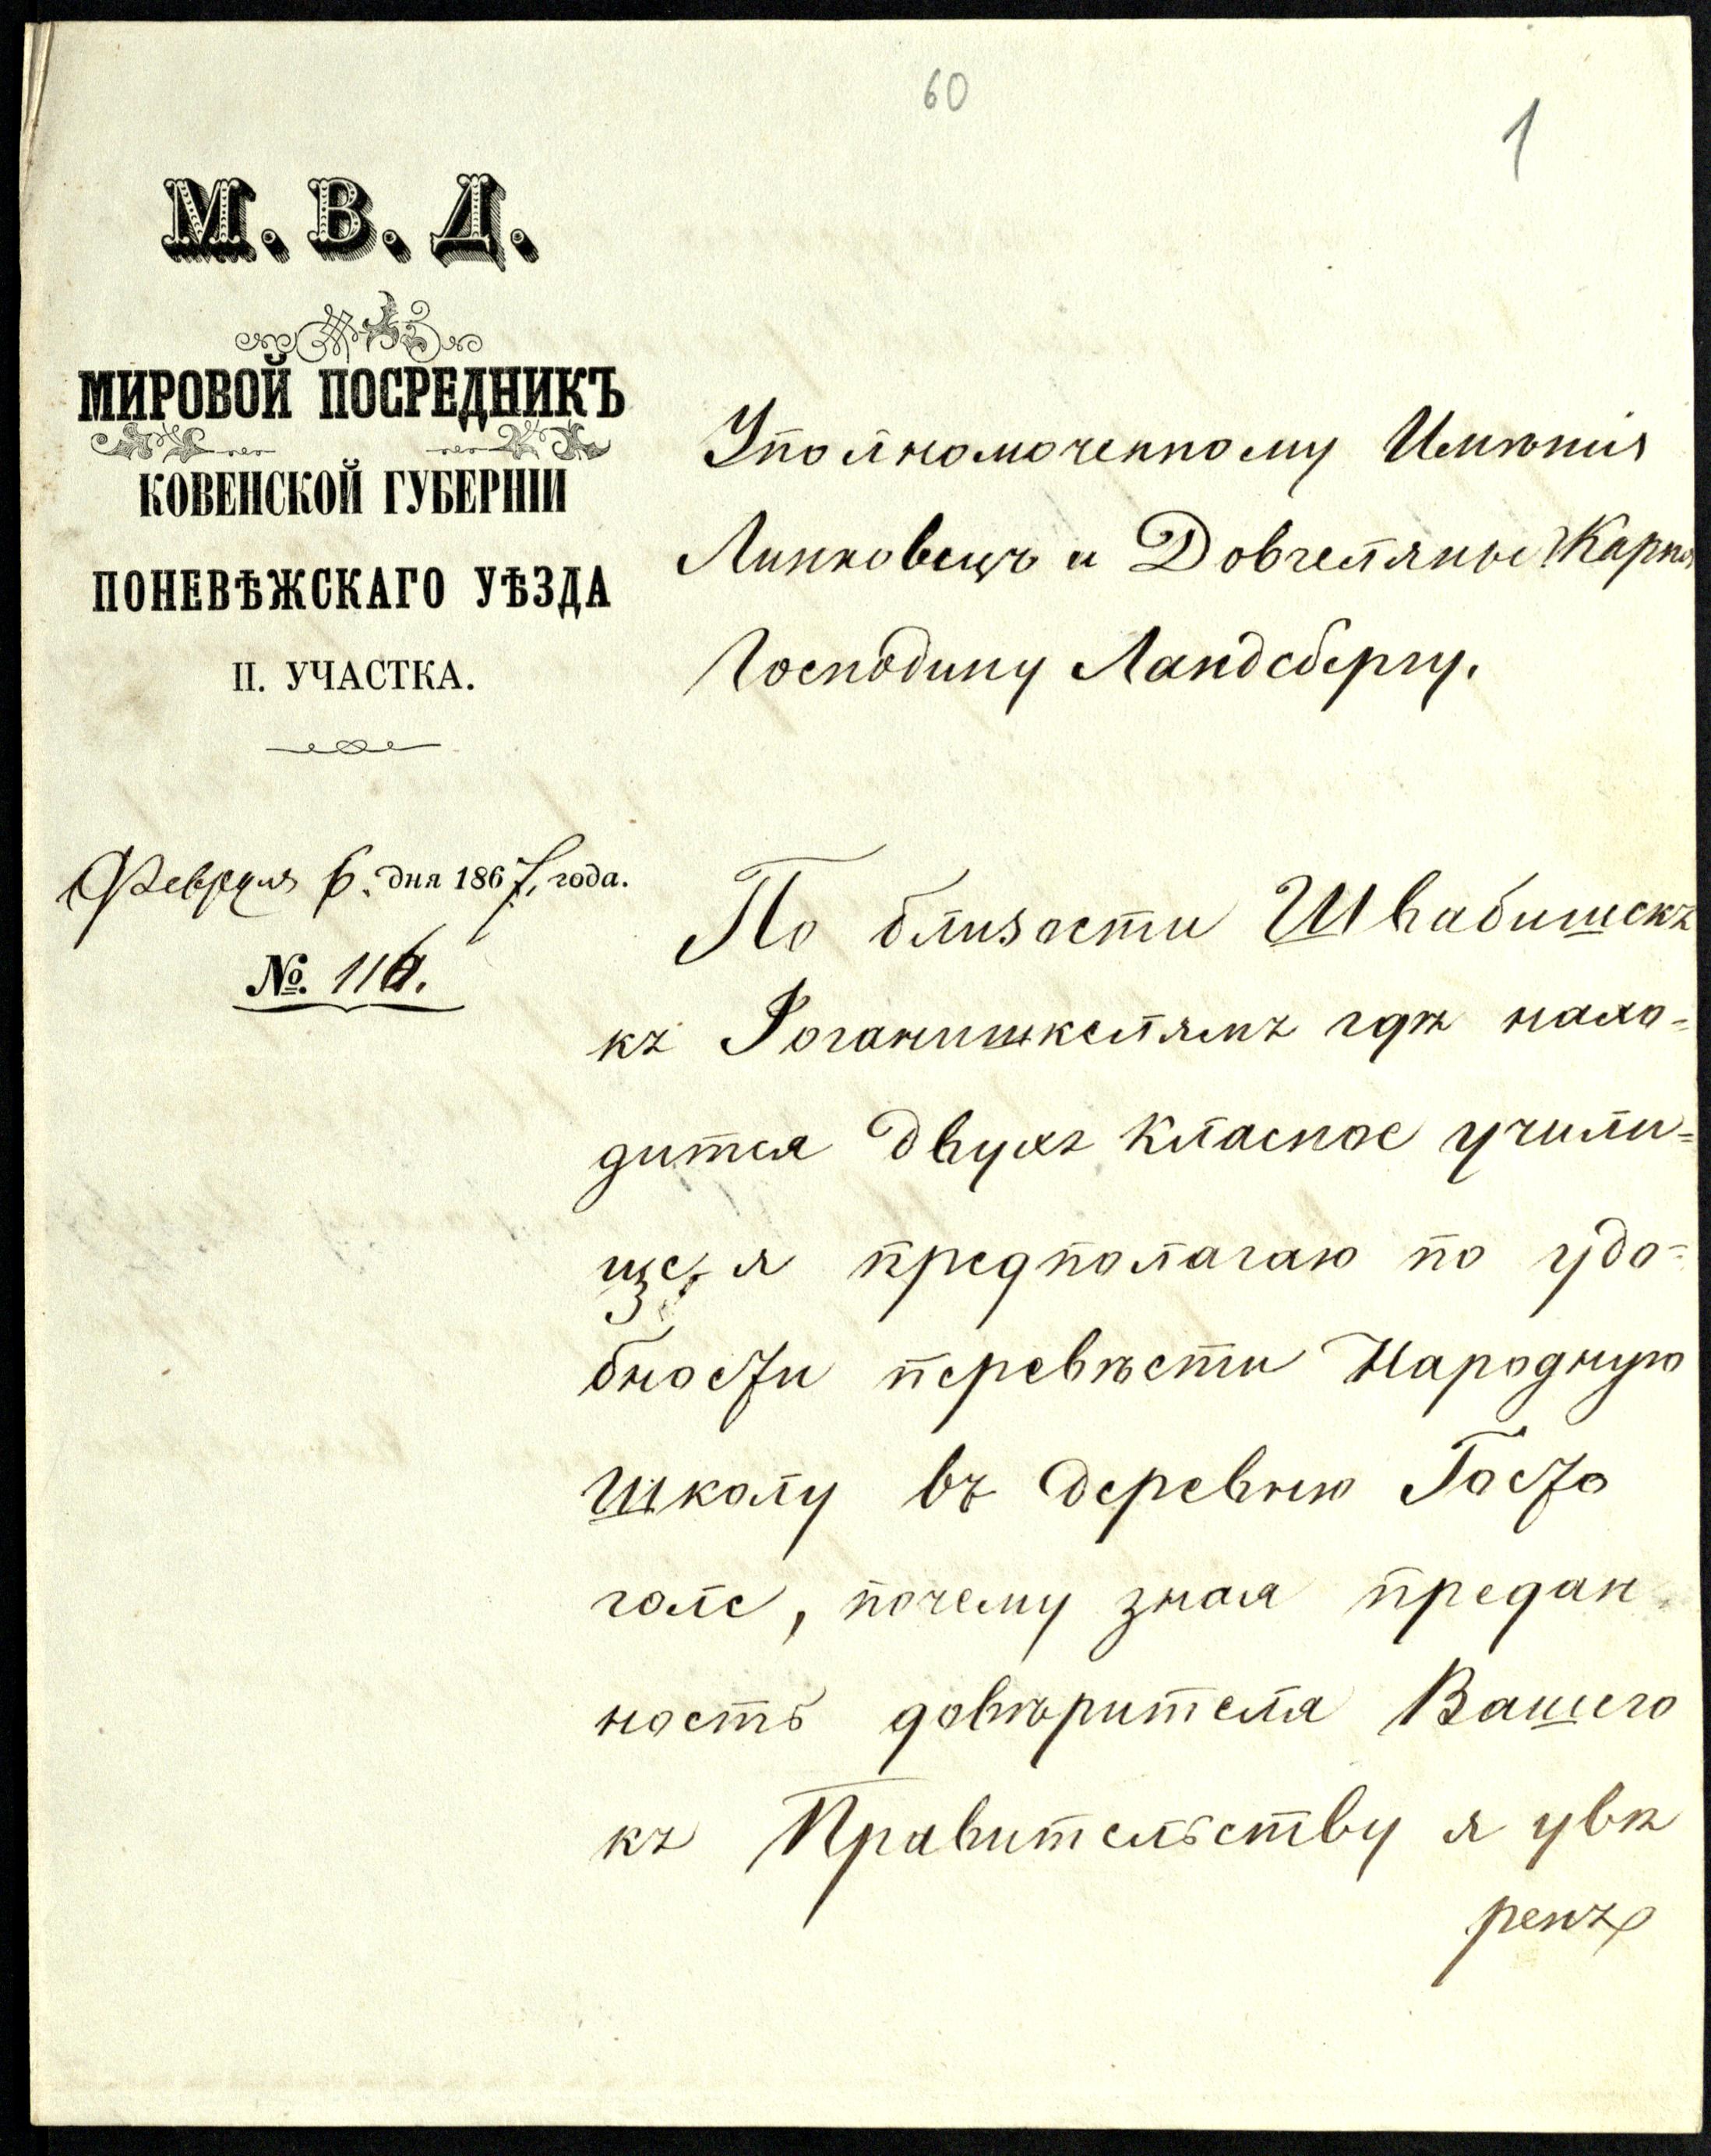 60
1
М. В. Д.
МИРОВОЙ ПОСРЕДНИКЪ
КОВЕНСКОЙ ГУБЕРНІИ
ПОНЕВѢЖСКАГО УѢЗДА
II. УЧАСТКА.
Февраля 6. дня 1867, года.
№. 116.
Уполномоченному Имѣнія
Линковецъ и Довгеляны
Господину Ландсбергу.
По близости Швабишекъ
къ Роганишкелямъ гдѣ нахо=
дится двухъ класное учили=
ще, я предполагаю по удо=
бности перевѣсти Народную
Школу въ деревню Госто
голе, почему зная предан
ность довѣрителя Вашего
къ Правительству я увѣ
ренъ